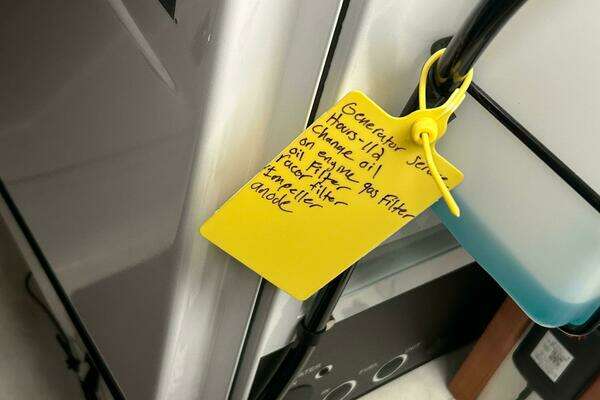 Generator
Hours-112
Change oil
on engine gas Filter
oil Filter
racor filter
Impeller
anode